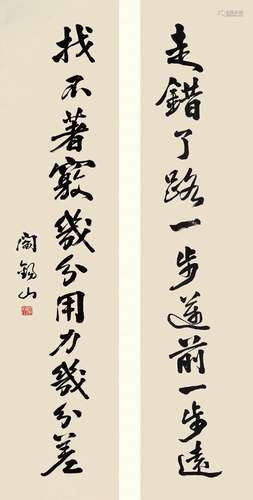 走錯了路一步進前一步遠
找不著竅幾分用力幾分差
閻錫山